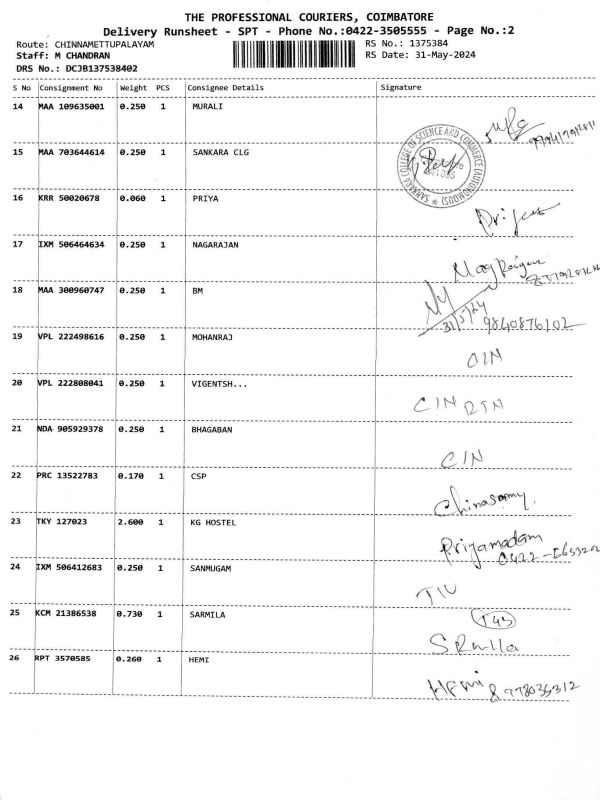 THE PROFESSIONAL COURIERS, COIMBATORE
Delivery Runsheet - SPT - Phone No.:0422-3505555 - Page No.:2
Route: CHINNAMETTUPALAYAM RS No.: 1375384
Staff: M CHANDRAN RS Date: 31-May-2024
DRS No.: DCJB137538402
S No Consignment No Weight PCS Consignee Details Signature
14 MAA 109635001 0.250 1 MURALI
15 MAA 703644614 0.250 1 SANKARA CLG
SANKARA COLLEGE OF SCIENCE AND COMMERCE (AUTONOMOUS)
16 KRR 50020678 0.060 1 PRIYA
17 IXM 506464634 0.250 1 NAGARAJAN
18 MAA 300960747 0.250 1 BM 31/5/24 9840876102
19 VPL 222498616 0.250 1 MOHANRAJ
20 VPL 222808041 0.250 1 VIGENTSH... CIN
21 NDA 905929378 0.250 1 BHAGABAN CIN
22 PRC 13522783 0.170 1 CSP Chinasamy.
23 TKY 127023 2.600 1 KG HOSTEL Priyamadam
24 IXM 506412683 0.250 1 SANMUGAM
25 KCM 21386538 0.730 1 SARMILA
26 RPT 3570585 0.260 1 HEMI Hemi